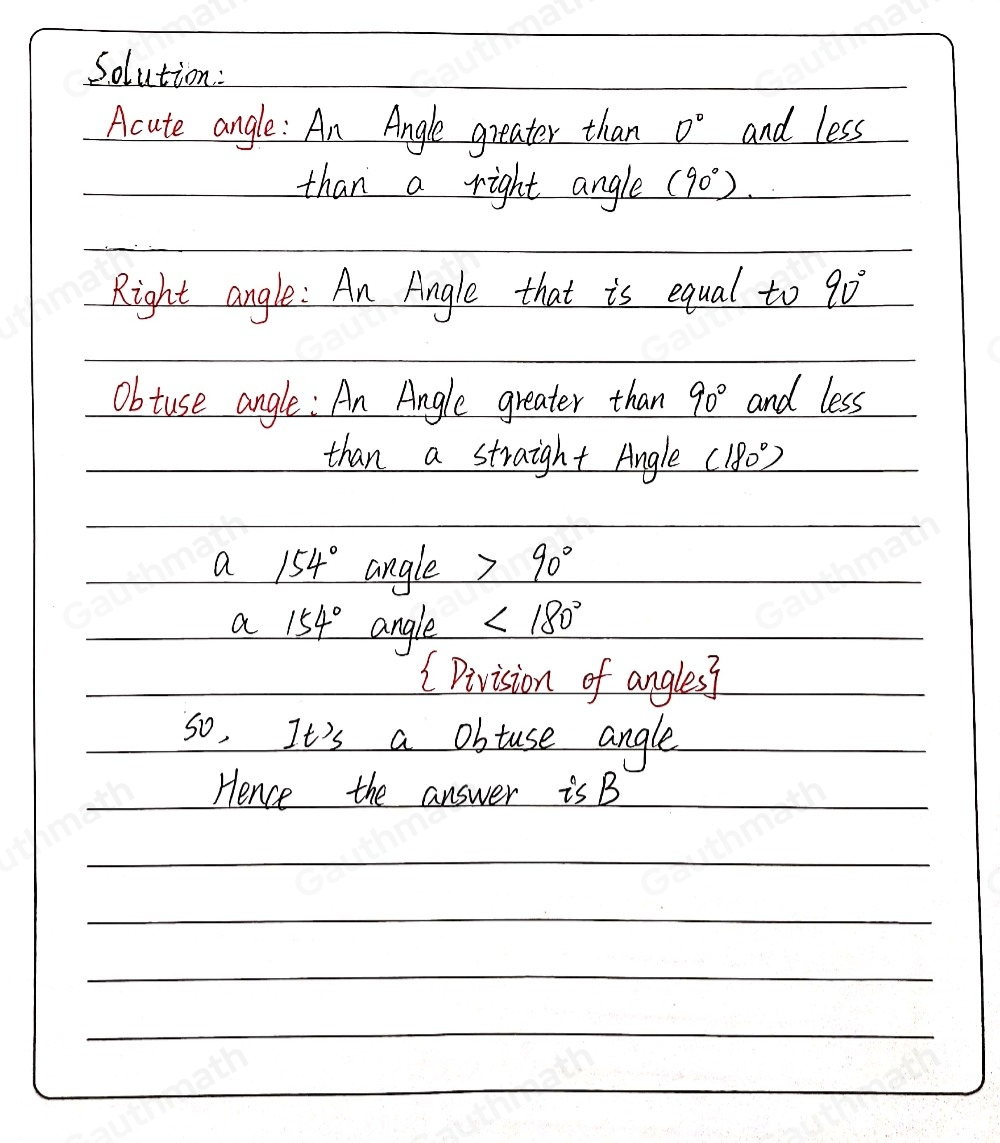 Solution:
Acute angle: An Angle greater than 0° and less
than a right angle (90°).
Right angle: An Angle that is equal to 90°
Obtuse angle: An Angle greater than 90° and less
than a straight Angle (180°)
a 154° angle > 90°
a 154° angle < 180°
{Division of angles}
so, It's a Obtuse angle
Hence the answer is B
Gauthmath